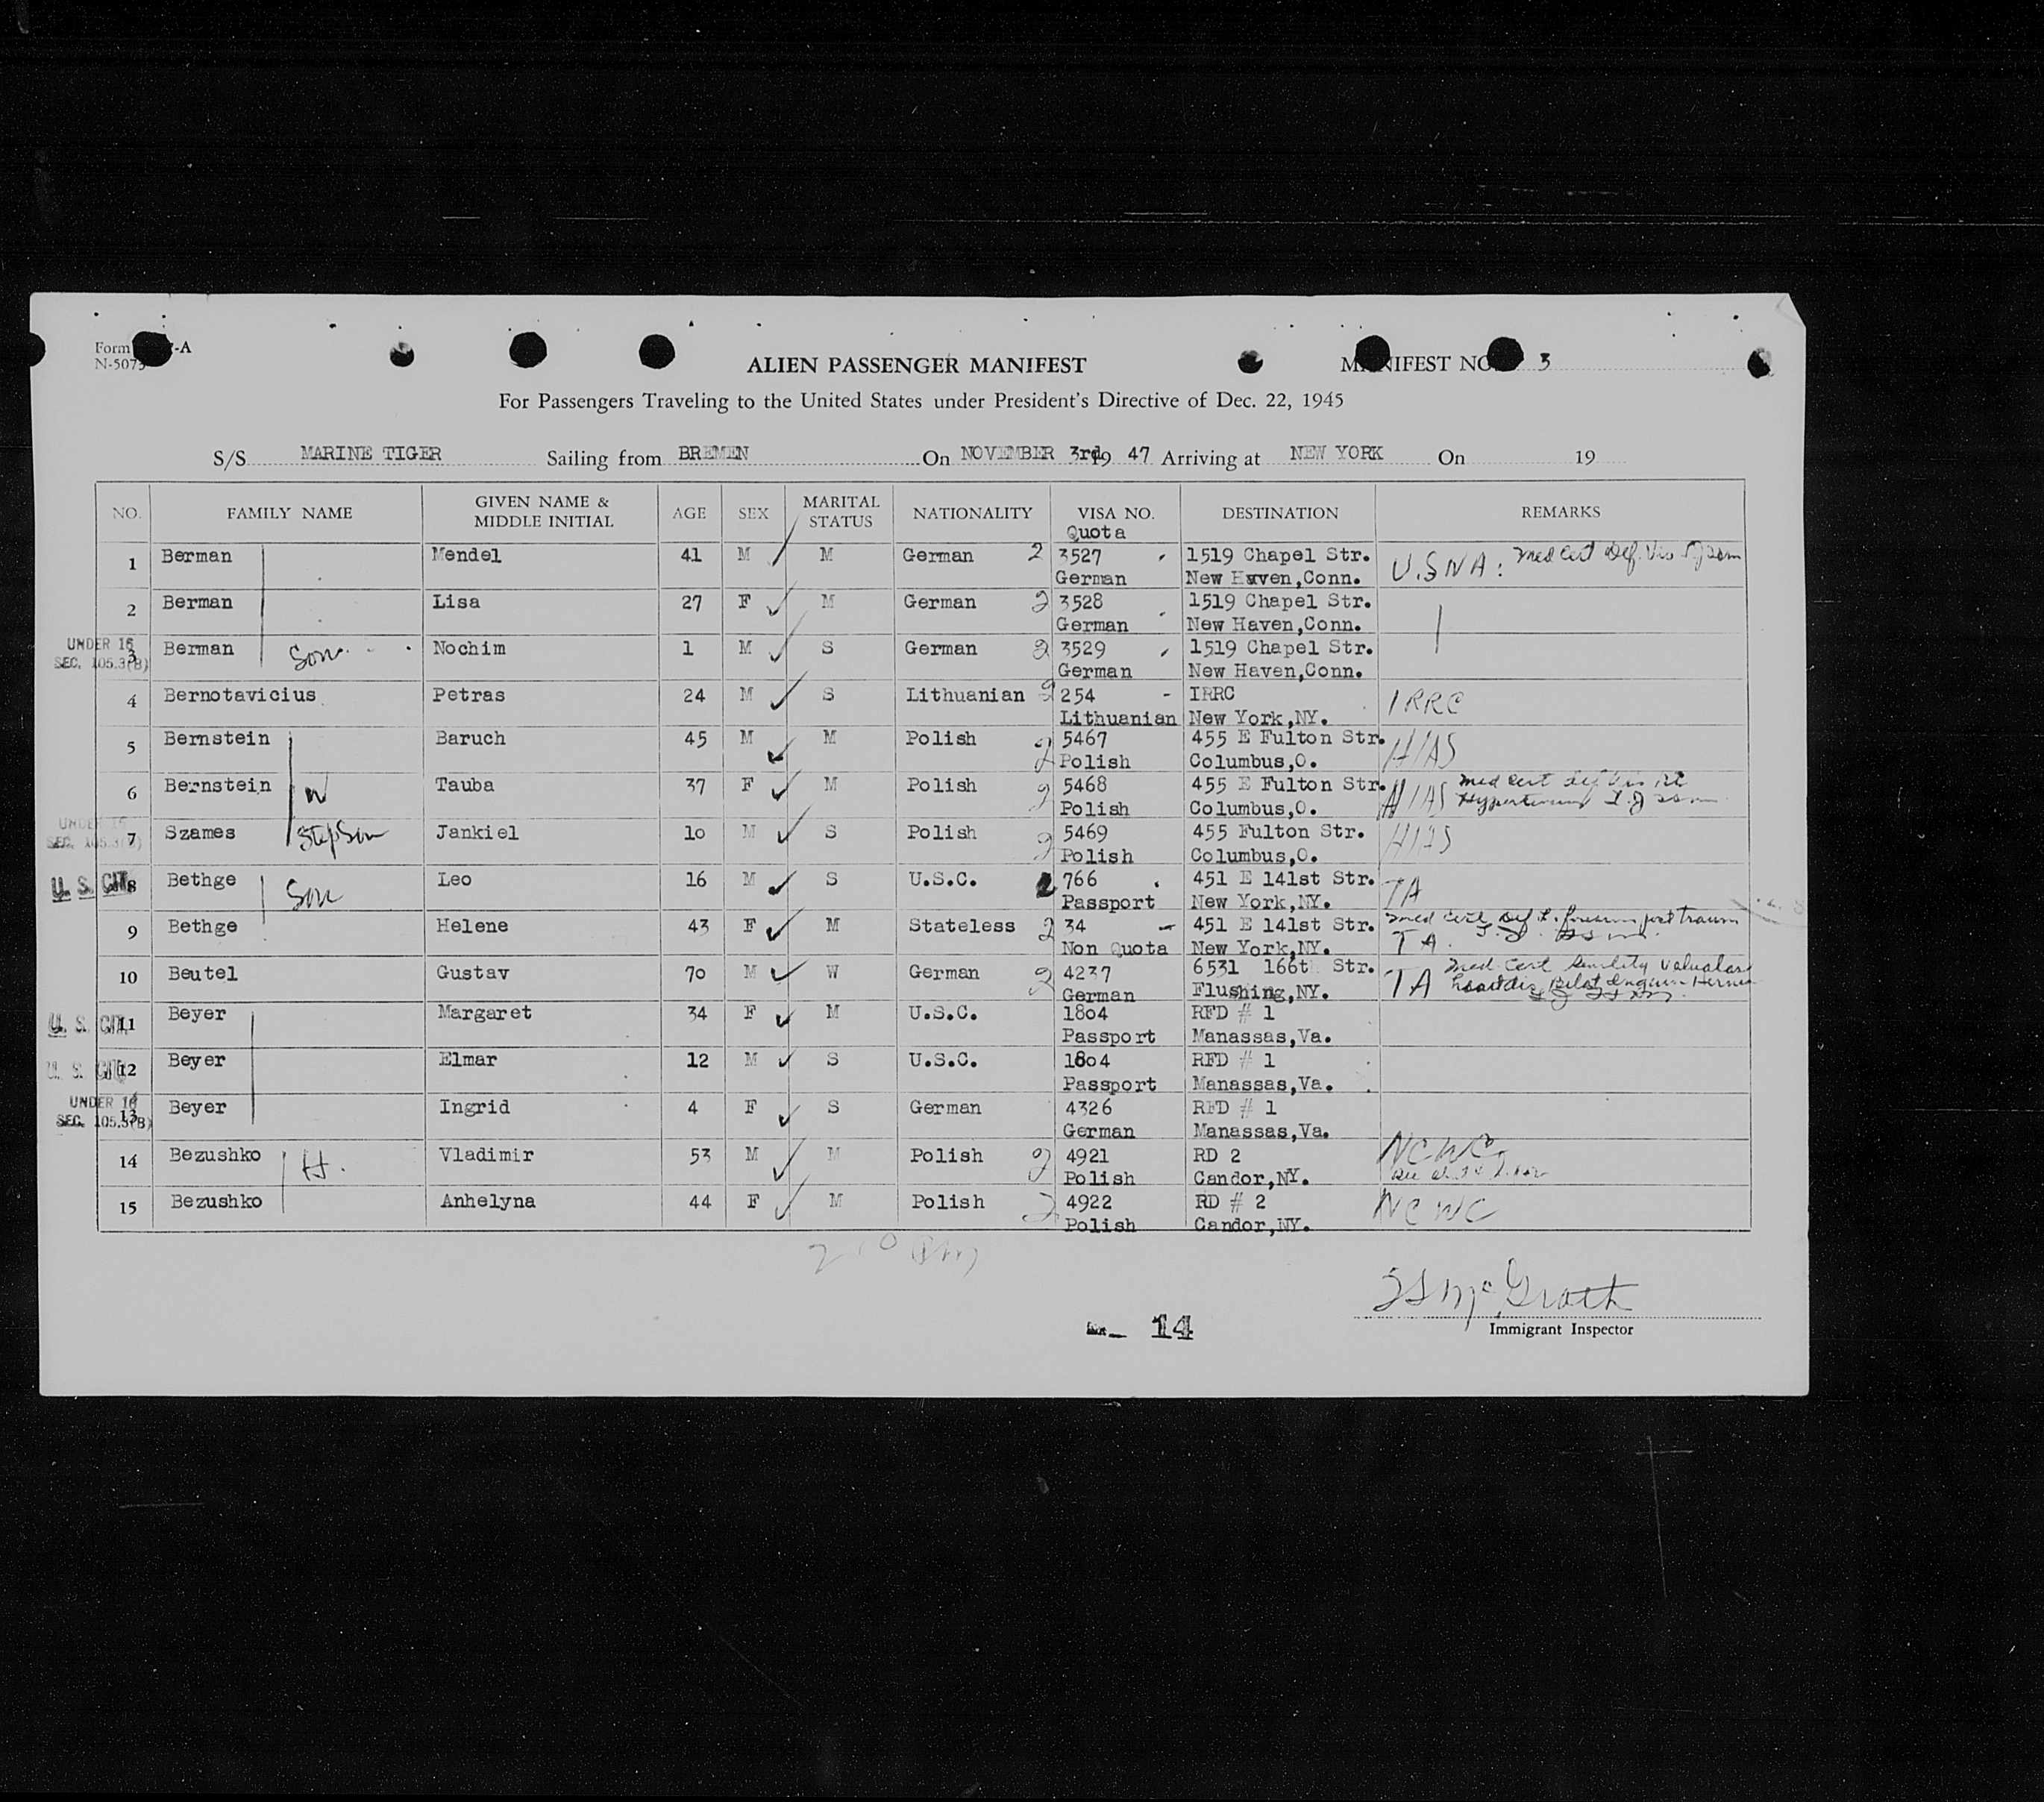 Form -A
N-507
ALIEN PASSENGER MANIFEST
MANIFEST NO. 3
For Passengers Traveling to the United States under President's Directive of Dec. 22, 1945
S/S MARINE TIGER Sailing from BREMEN On NOVEMBER 3rd 19 47 Arriving at NEW YORK On 19
NO. FAMILY NAME GIVEN NAME & MIDDLE INITIAL AGE SEX MARITAL STATUS NATIONALITY VISA NO. DESTINATION REMARKS
Quota
1 Berman Mendel 41 M M German 2 3527 1519 Chapel Str. U.S.N.A: Med Cert Def. Vis
German New Haven,Conn.
2 Berman Lisa 27 F M German 2 3528 1519 Chapel Str.
German New Haven,Conn.
UNDER 16 SEC. 105.3(B) 3 Berman Son Nochim 1 M S German 2 3529 1519 Chapel Str.
German New Haven,Conn.
4 Bernotavicius Petras 24 M S Lithuanian 2 254 - IRRC IRRC
Lithuanian New York,NY.
5 Bernstein Baruch 45 M M Polish 2 5467 455 E Fulton Str. HIAS
Polish Columbus,O.
6 Bernstein W Tauba 37 F M Polish 2 5468 455 E Fulton Str. HIAS Med Cert def vis
Polish Columbus,O. Hypertension
UNDER 16 SEC. 105.3(B) 7 Szames Stepson Jankiel 10 M S Polish 2 5469 455 Fulton Str. HIAS
Polish Columbus,O.
U. S. CIT. 8 Bethge Son Leo 16 M S U.S.C. 2 766 451 E 141st Str. TA
Passport New York,NY.
9 Bethge Helene 43 F M Stateless 2 34 - 451 E 141st Str. Med Cert Def L. forearm post traum
Non Quota New York,NY. TA.
10 Beutel Gustav 70 M W German 2 4237 6531 166t Str. TA Med. Cert Senility Valvular
German Flushing,NY. Hernia
U. S. CIT. 11 Beyer Margaret 34 F M U.S.C. 1804 RFD # 1
Passport Manassas,Va.
U. S. CIT. 12 Beyer Elmar 12 M S U.S.C. 1804 RFD # 1
Passport Manassas,Va.
UNDER 16 SEC. 105.3(B) 13 Beyer Ingrid 4 F S German 4326 RFD # 1
German Manassas,Va.
14 Bezushko H. Vladimir 53 M M Polish 2 4921 RD 2 NCWC
Polish Candor,NY.
15 Bezushko Anhelyna 44 F M Polish 2 4922 RD # 2 NCWC
Polish Candor,NY.
14
McGrath
Immigrant Inspector